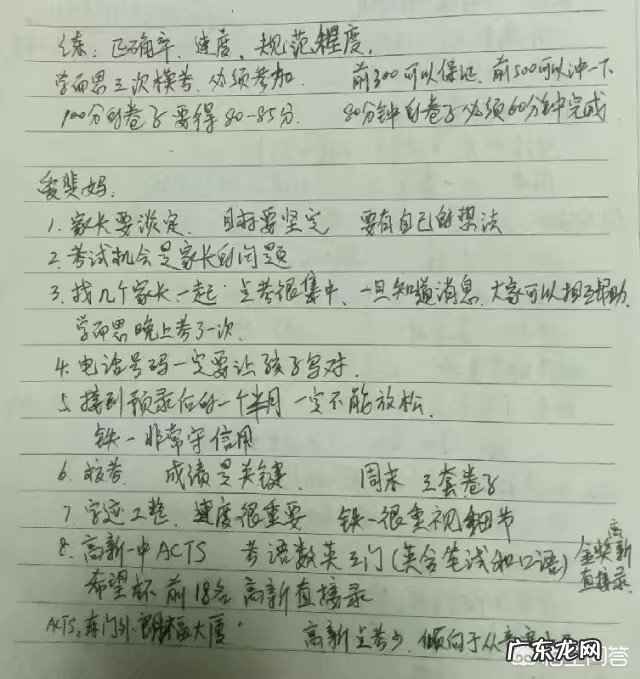 练：正确率、速度、规范程度。
学而思三次模考，必须参加.　前300可以保证、前500可以冲一下
100分的卷子要得80-85分.　80分钟的卷子必须60分钟完成
斐妈：
1. 家长要淡定、目标要坚定　要有自己的想法
2. 考试机会是家长的问题
3. 找几个家长一起　点考很集中、一旦知道消息、大家可以相互帮助.
学而思晚上考了一次.
4. 电话号码一定要让孩子写对.
5. 接到预录后的一个半月　一定不能放松.
铁一非常守信用
6. 校考.　成绩是关键.　周末　三套卷子
7. 字迹工整、速度很重要　铁一很重视细节
8. 高新一中ACTS　考语数英三门(英含笔试和口语)
金奖高新直接录.
希望杯前18名　高新直接录
ACTS: 大厦.　高新点考少.倾向于从
头条问答
广东龙网